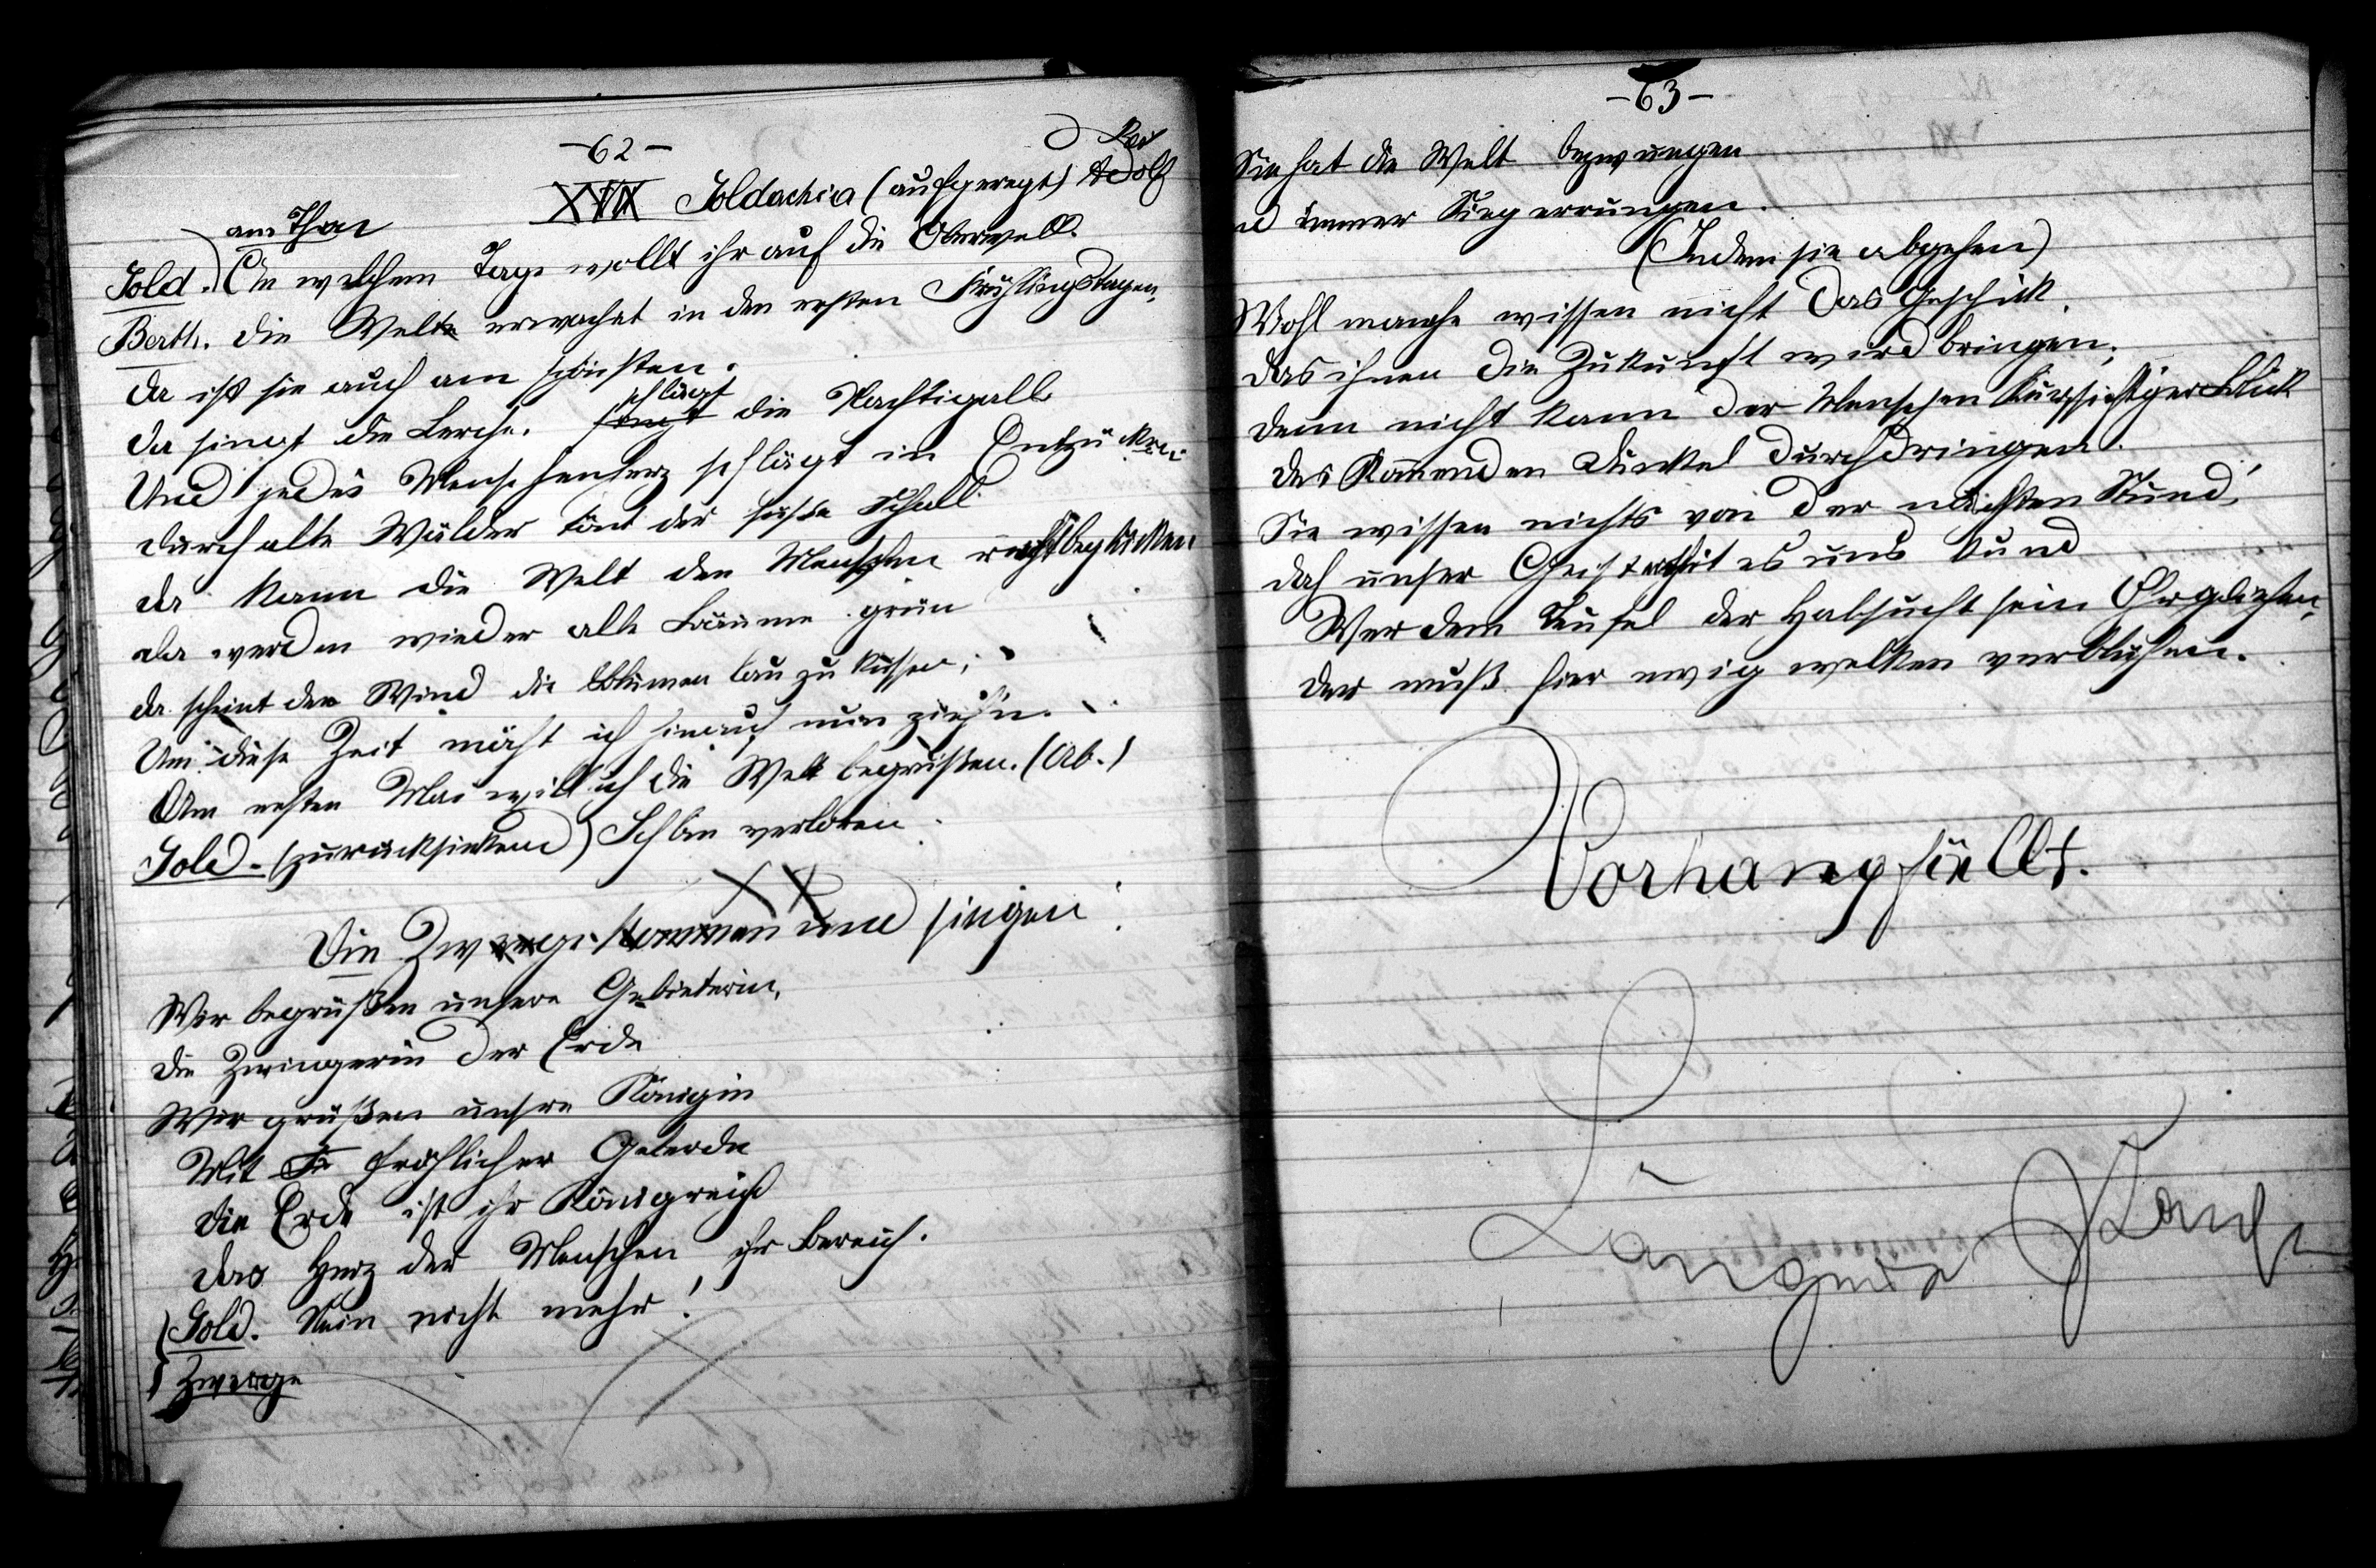 -62-
XVII Goldachia (aufgeregt) Adolf
am Thor
Gold. An welchem Tage wollt ihr auf die Oberwelt.
Berth. Die Welt erwachet in den ersten Frühlingstagen,
da ist sie auch am schönsten.
da singt die Lerche. schlägt die Nachtigall
Und jedes Menschenherz schlägt in Entzücken
durch alte Wälder tönt der süsse Schall
da kann die Welt den Menschen recht beglücken
da werden wieder alle Bäume grün
da scheint der Wind die Blumen lau zu küssen;
Um diese Zeit möcht ich hinauf nun ziehn.
Am ersten Mai will ich die Welt begrüßen. (Ab.)
Gold. (zurücksinkend) Ich bin verloren.
Die Zwerge kommen und singen:
Wir begrüßen unsere Gebieterin,
die Zwingerin der Erde
Wir grüßen unsre Königin
Mit fröhlicher Geberde
Die Erde ist ihr Königreich
das Herz der Menschen ihr Bereich.
Gold. Nun nicht mehr!
Zwerge
-63-
Sie hat die Welt bezwungen
immer Sieg errungen.
(Indem sie abgehen)
Wohl manche wissen nicht das Geschick,
das ihnen die Zukunft wird bringen;
denn nicht kann der Menschen kurzsichtiger Blick
des Kommenden Dunkel durchdringen.
Sie wissen nichts von der nächsten Stund,
doch unser Geist es uns kund
Wer dem Teufel der Habsucht sein Ohr geliehen,
der muß hier ewig welken verblühen.
Vorhang fällt.